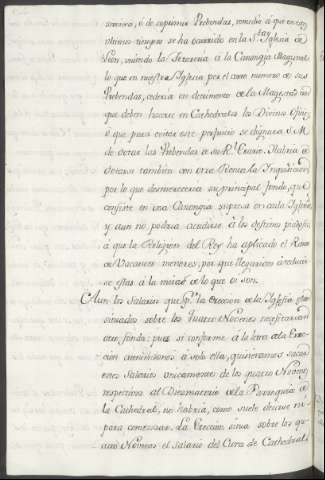 numero, ó de suprimir Prebendas, remedio á que en es-
ultimos tiempos se ha ocurrido en la Sta Yglesia de
Leon, uniendo la Tesoreria á la Canongia Magistral
lo que en nuestra Yglesia por el corto numero de sus
Prebendas, cederia en detrimento de la Magestad con
que deben hacerse en Cathedrales los Divinos Oficios
ó que para evitar este perjuicio se dignara S. M.
de dotar las Prebendas de su Rl. Erario. Habria de
dotarse tambien con otra Renta la Ynquisicion
por lo que desmereceria su principal fondo, que
consiste en una Canongia supresa en cada Yglesia
y aun no podria acudirse á los destinos piadosos
á que la Religion del Rey ha aplicado el Ramo
de Vacantes menores, por que llegarian á reducir-
se estas á la mitad de lo que oy son.
Aun los Salarios que pr. la ereccion de la Yglesia estan
situados sobre los quatro Novenos necesitarian
otro fondo: pues si conforme á la letra de la Erec-
cion atendiendose á solo ella, quisieramos sacar
estos Salarios unicamente de los quatro Novenos
respectivos al Diezmatorio de la Parroquia de
la Cathedral, no habria, como suele decirse ni
para comenzar. La Ereccion situa sobre los qua-
tro Novenos el salario del Cura de Cathedral